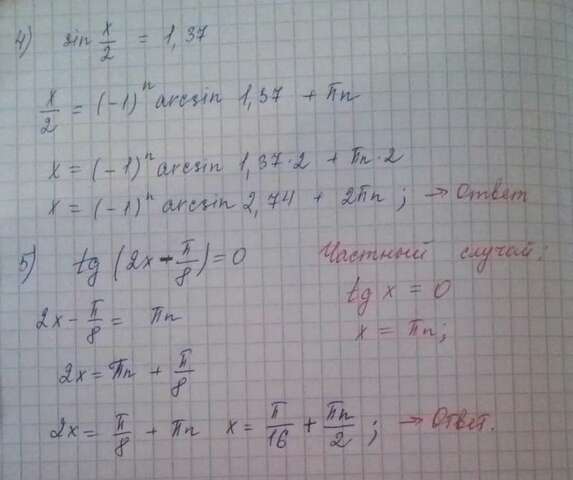 4) sin x/2 = 1,37
x/2 = (-1)^n arcsin 1,37 + πn
x = (-1)^n arcsin 1,37·2 + πn·2
x = (-1)^n arcsin 2,74 + 2πn ; → Ответ
5) tg (2x - π/8) = 0
Частный случай:
tg x = 0
x = πn;
2x - π/8 = πn
2x = πn + π/8
2x = π/8 + πn x = π/16 + πn/2 ; → Ответ.